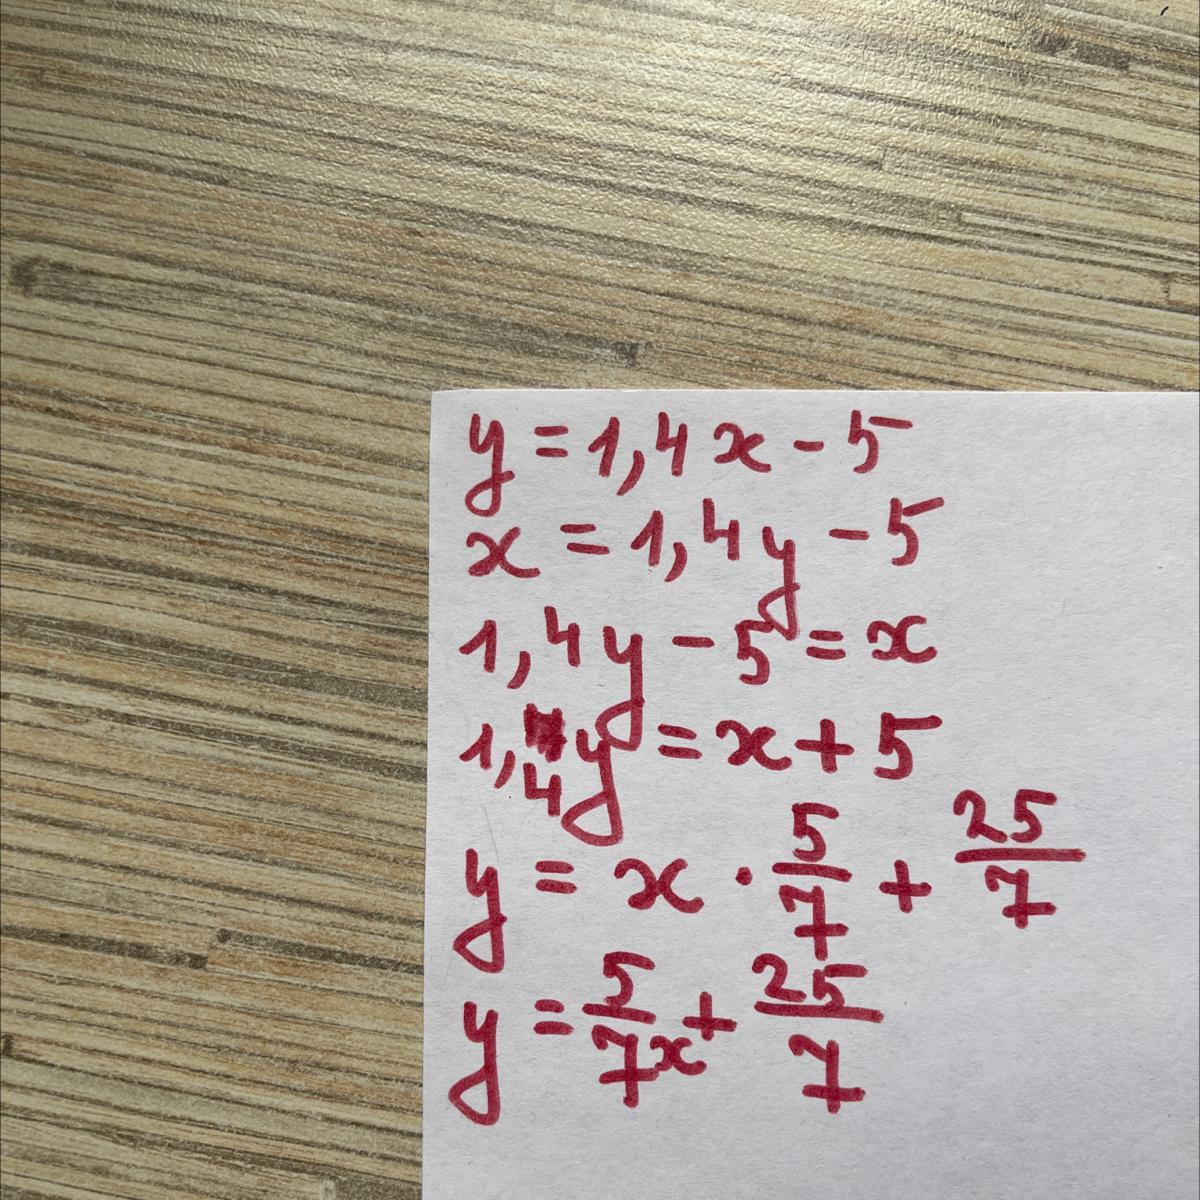 y = 1,4x - 5
x = 1,4y - 5
1,4y - 5 = x
1,4y = x + 5
y = x · 5/7 + 25/7
y = 5/7x + 25/7